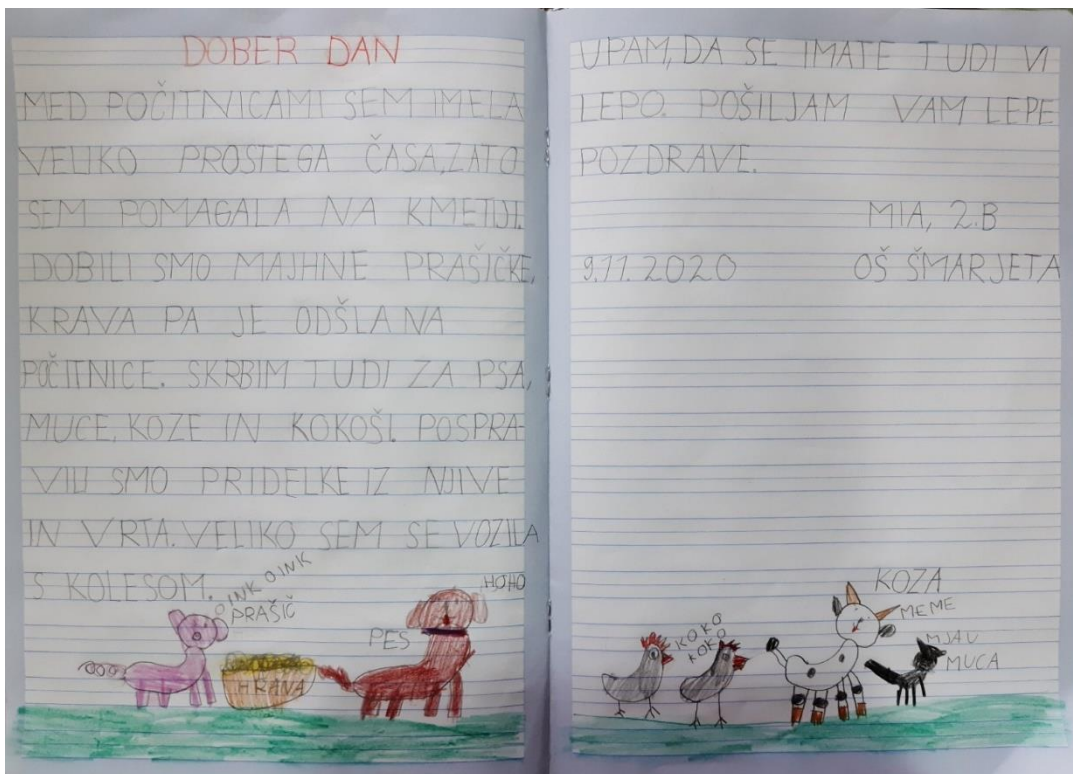 DOBER DAN
MED POČITNICAMI SEM IMELA
VELIKO PROSTEGA ČASA, ZATO
SEM POMAGALA NA KMETIJI.
DOBILI SMO MAJHNE PRAŠIČKE,
KRAVA PA JE ODŠLA NA
POČITNICE. SKRBIM TUDI ZA PSA,
MUCE, KOZE IN KOKOŠI. POSPRA-
VILI SMO PRIDELKE IZ NJIVE
IN VRTA. VELIKO SEM SE VOZILA
S KOLESOM.
OINK OINK
PRAŠIČ
HRANA
PES
HOHO
UPAM, DA SE IMATE TUDI VI
LEPO. POŠILJAM VAM LEPE
POZDRAVE.
MIA, 2.B
9.11.2020 OŠ ŠMARJETA
KOKO
KOKO
KOZA
MEME
MJAU
MUCA